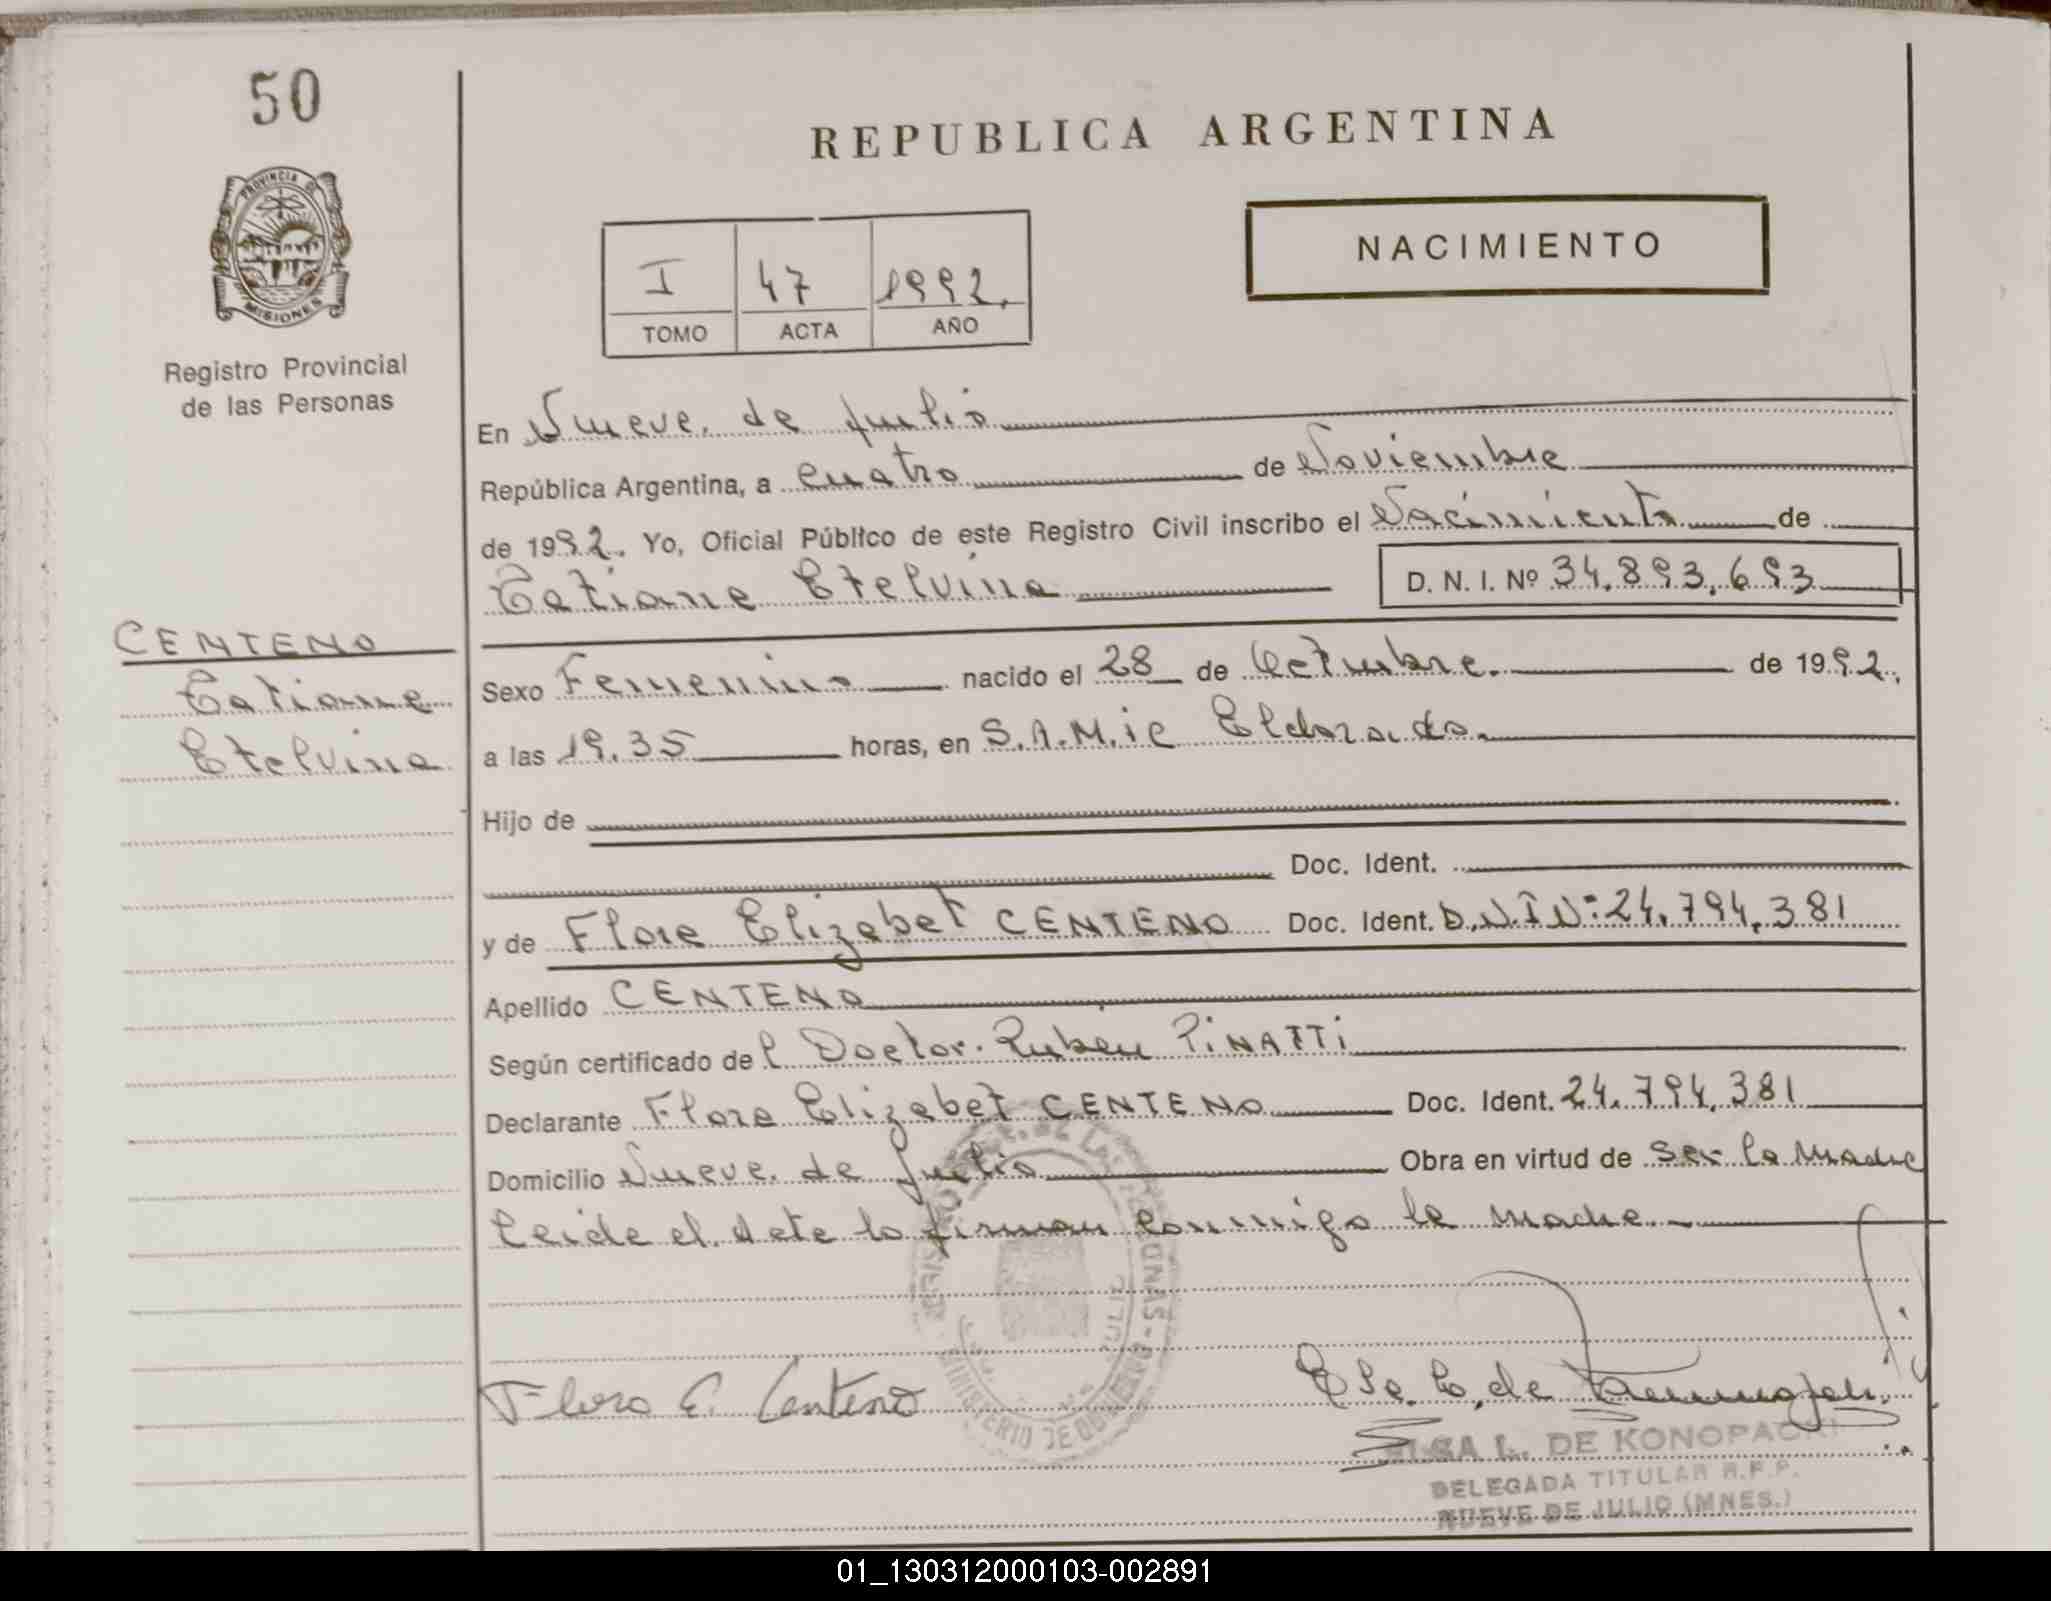 50
REPUBLICA ARGENTINA
PROVINCIA DE
MISIONES
Registro Provincial
de las Personas
NACIMIENTO
I 47 1992.
TOMO ACTA AÑO
En Nueve de Julio
República Argentina, a cuatro de Noviembre
de 1992. Yo, Oficial Público de este Registro Civil inscribo el Nacimiento de
Tatiane Etelvina D. N. I. Nº 34.893.693
CENTENO
Tatiane
Etelvina
Sexo Femenino nacido el 28 de Octubre. de 1992.
a las 19.35 horas, en S.A.M.ic Eldorado.
Hijo de
Doc. Ident.
y de Flora Elizabet CENTENO Doc. Ident. D.N.I Nº 24.794.381
Apellido CENTENO
Según certificado del Doctor Rubén PiNATTi
Declarante Flora Elizabet CENTENO Doc. Ident. 24.794.381
Domicilio Nueve de Julio Obra en virtud de ser la madre
Leida el Acta la firman conmigo la madre
Flora E. Centeno
L. DE KONOPACKI
DELEGADA TITULAR R.P.P.
NUEVE DE JULIO (MNES.)
MINISTERIO DE GOBIERNO
01_130312000103-002891